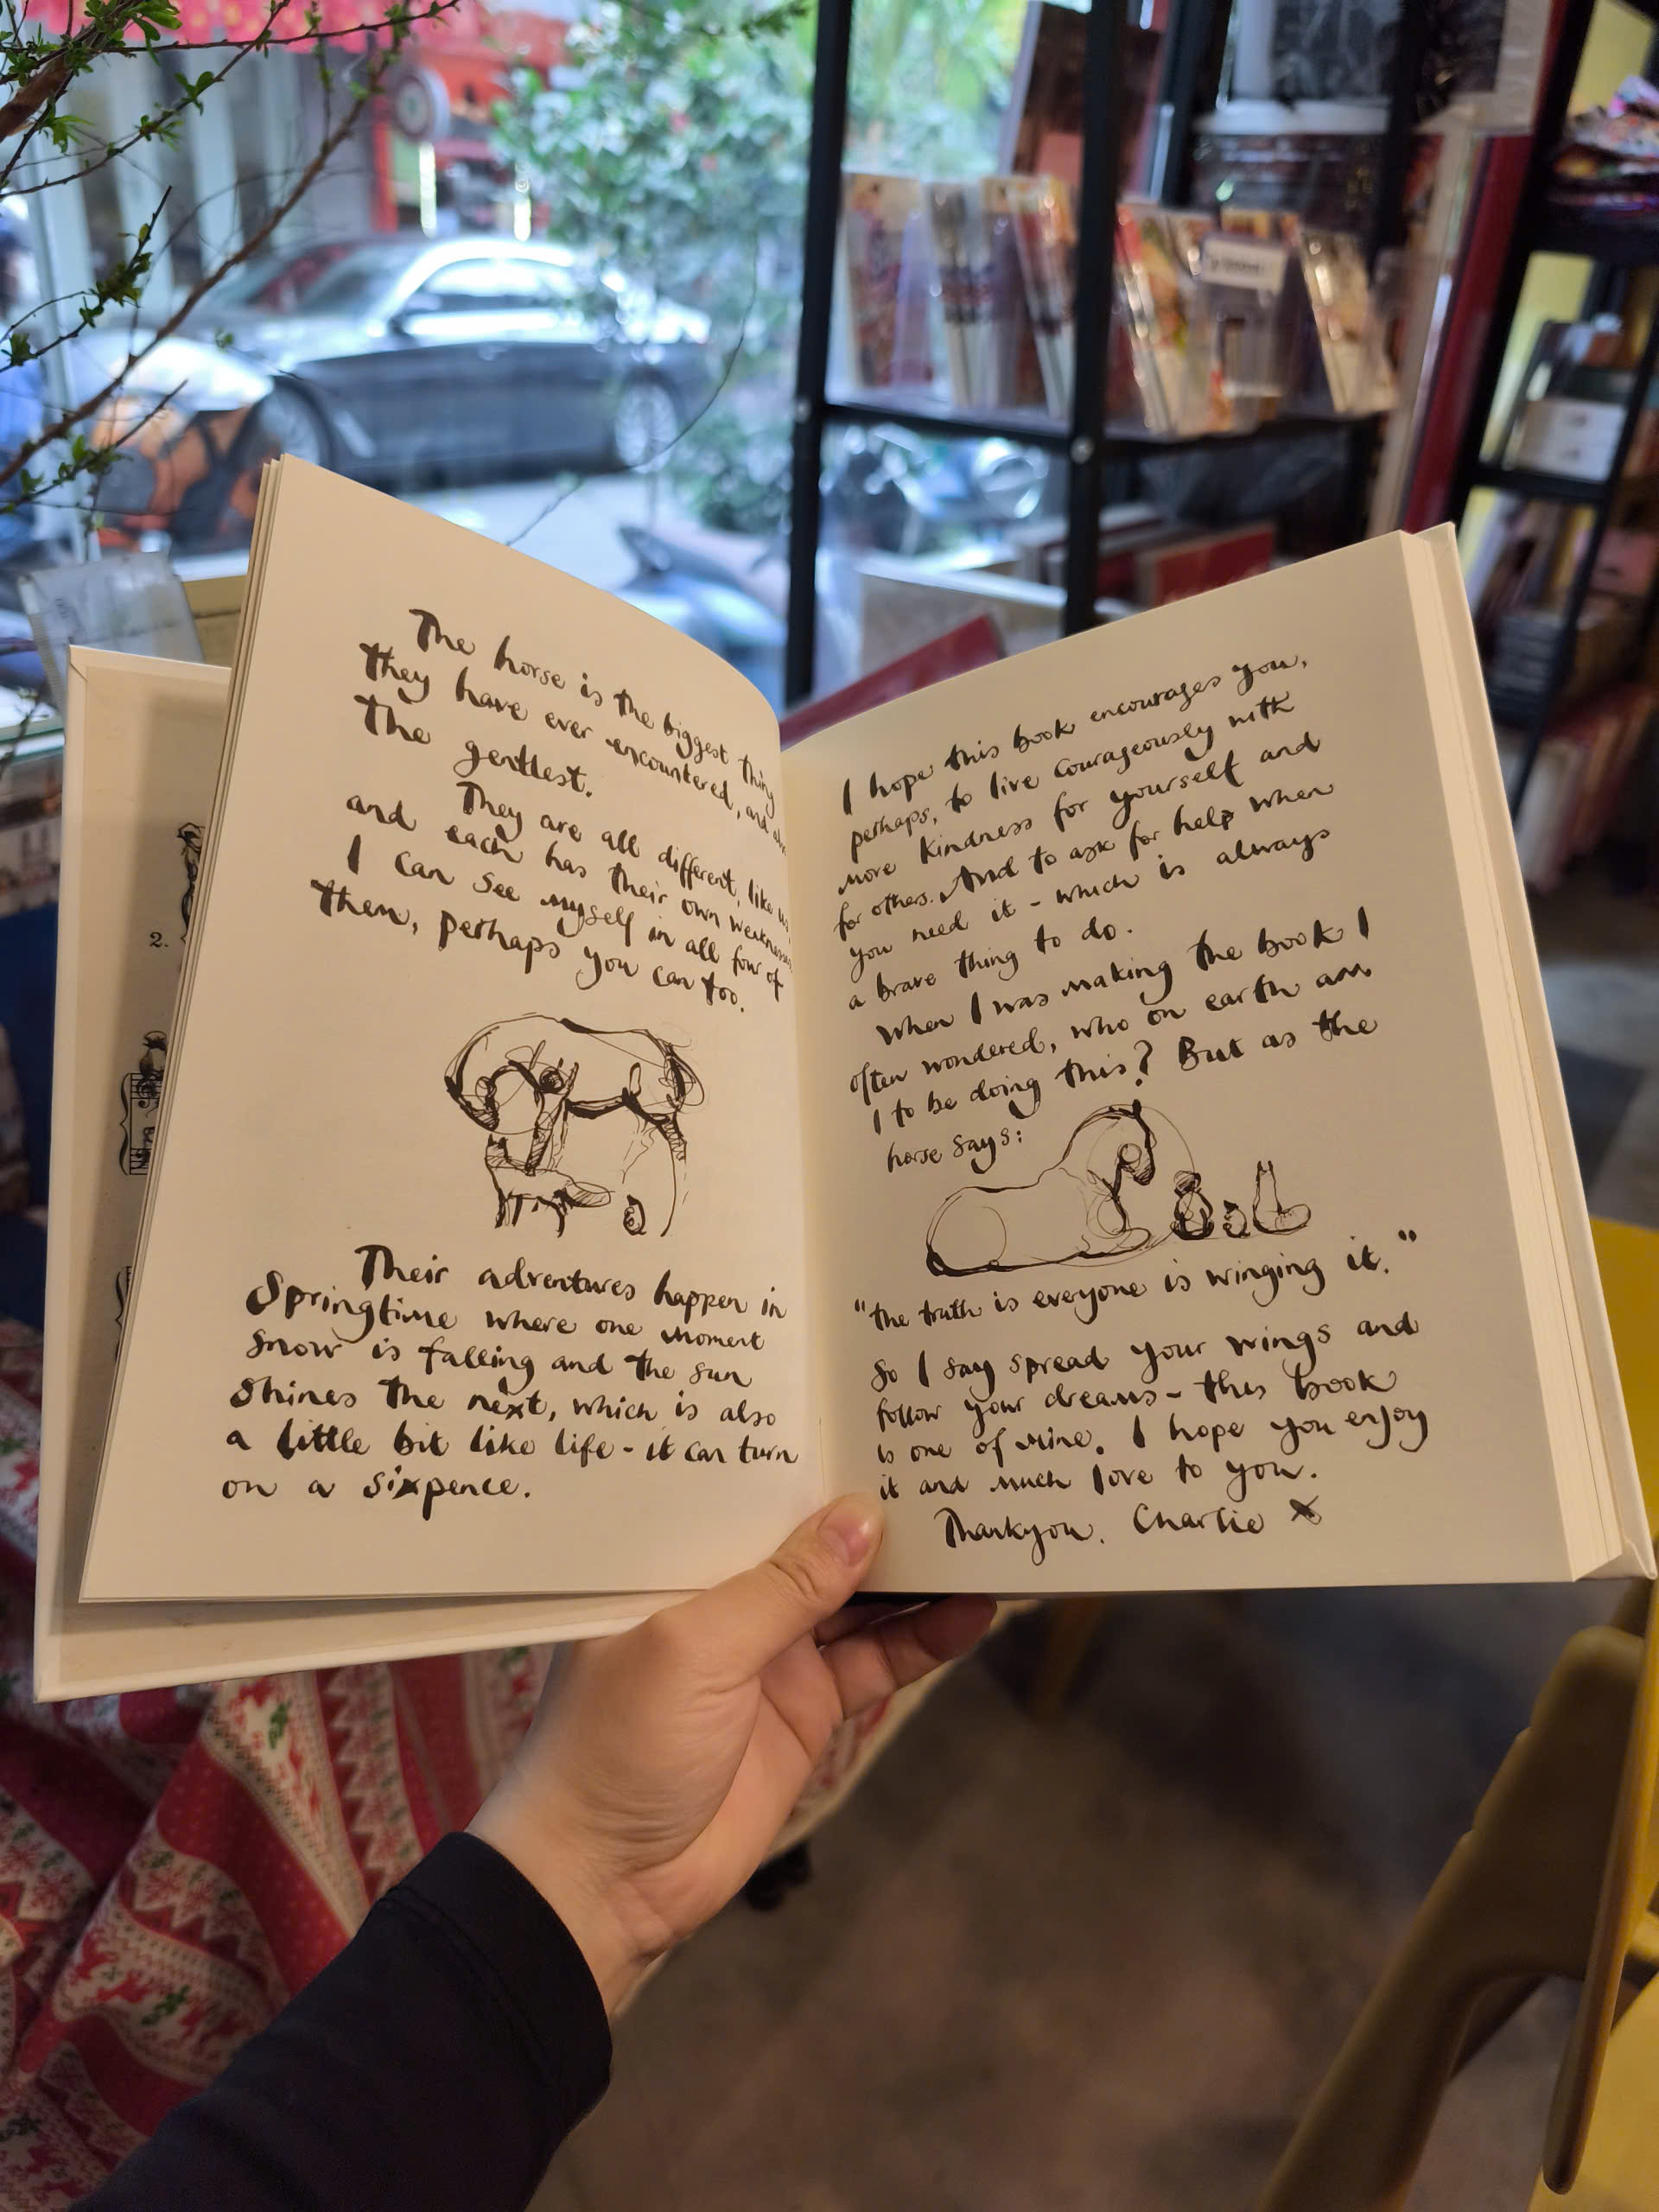 The horse is the biggest thing
they have ever encountered, and also
the gentlest.
They are all different, like us,
and each has their own weaknesses.
I can see myself in all four of
them, perhaps you can too.
Their adventures happen in
Springtime where one moment
snow is falling and the sun
shines the next, which is also
a little bit like life - it can turn
on a sixpence.
2.
I hope this book encourages you,
perhaps, to live courageously with
more kindness for yourself and
for others. And to ask for help when
you need it - which is always
a brave thing to do.
When I was making the book I
often wondered, who on earth am
I to be doing this? But as the
horse says:
"the truth is everyone is winging it."
So I say spread your wings and
follow your dreams - this book
is one of mine. I hope you enjoy
it and much love to you.
Thankyou. Charlie x